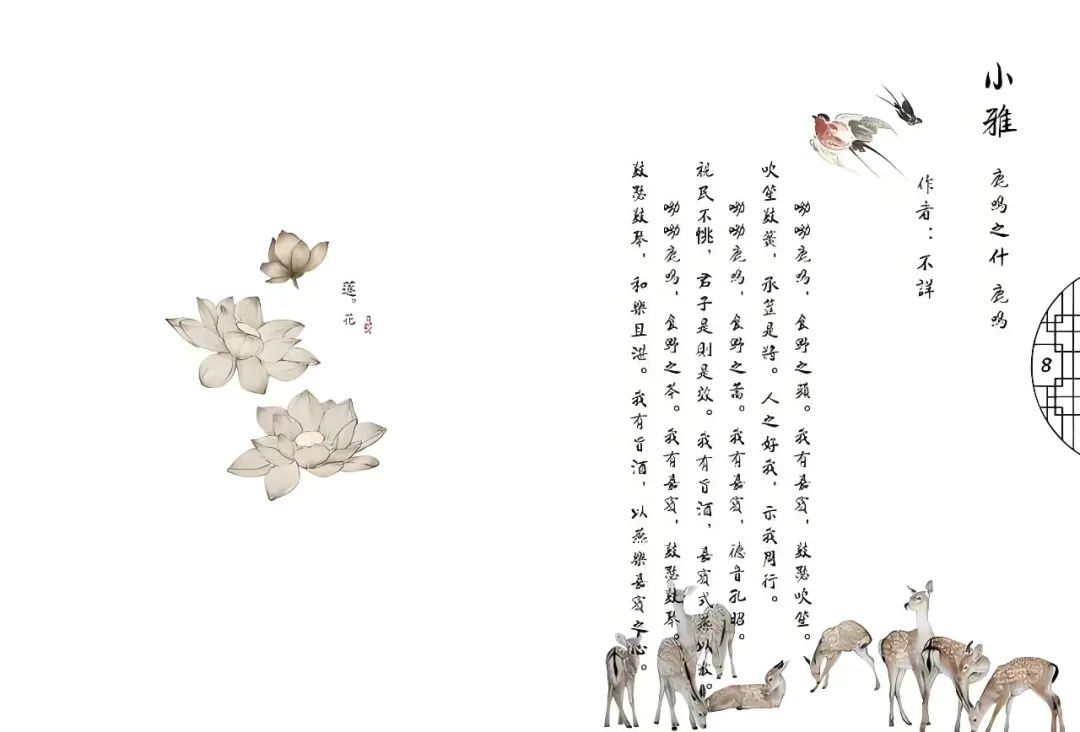 小雅 鹿鳴之什 鹿鳴
作者：不詳
呦呦鹿鳴，食野之蘋。我有嘉賓，鼓瑟吹笙。
吹笙鼓簧，承筐是將。人之好我，示我周行。
呦呦鹿鳴，食野之蒿。我有嘉賓，德音孔昭。
視民不恌，君子是則是效。我有旨酒，嘉賓式燕以敖。
呦呦鹿鳴，食野之芩。我有嘉賓，鼓瑟鼓琴。
鼓瑟鼓琴，和樂且湛。我有旨酒，以燕樂嘉賓之心。
8
蓮。花